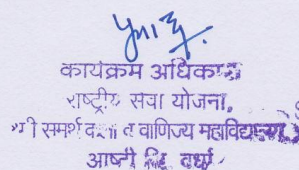 कार्यक्रम अधिकारी
राष्ट्रीय सेवा योजना,
समर्थ कला व वाणिज्य महाविद्यालय
आष्टी जि. वर्धा